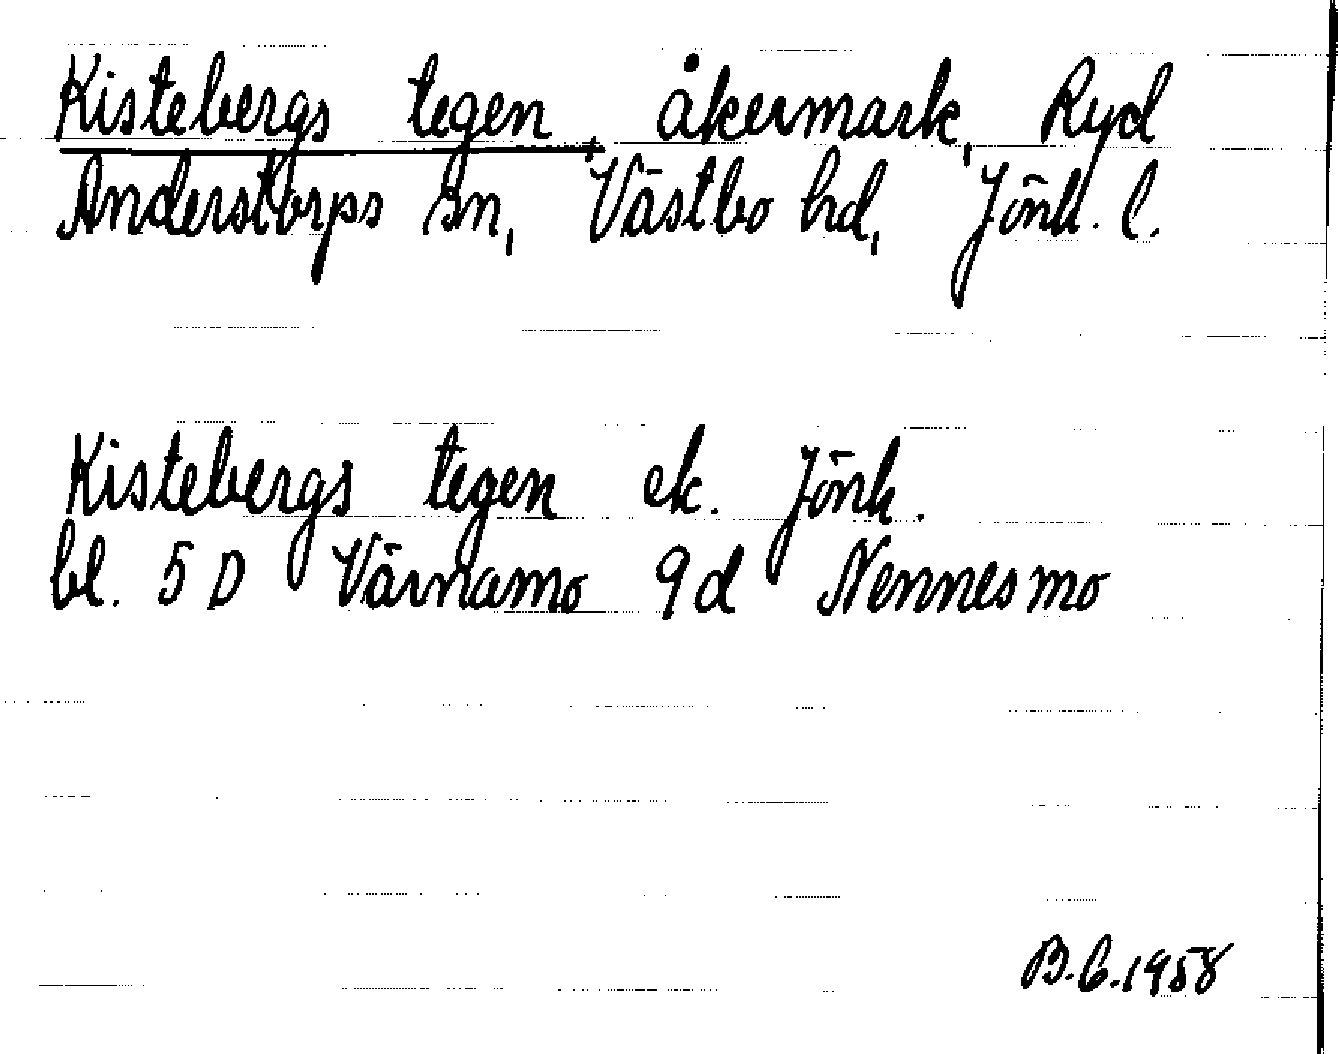 Kistebergs tegen, åkermark, Ryd
Anderstorps sn, Västbo hd, Jönk. l.
Kistebergs tegen ek. Jönk.
bl. 5 D Värnamo 9d Nennesmo
B.G.1958